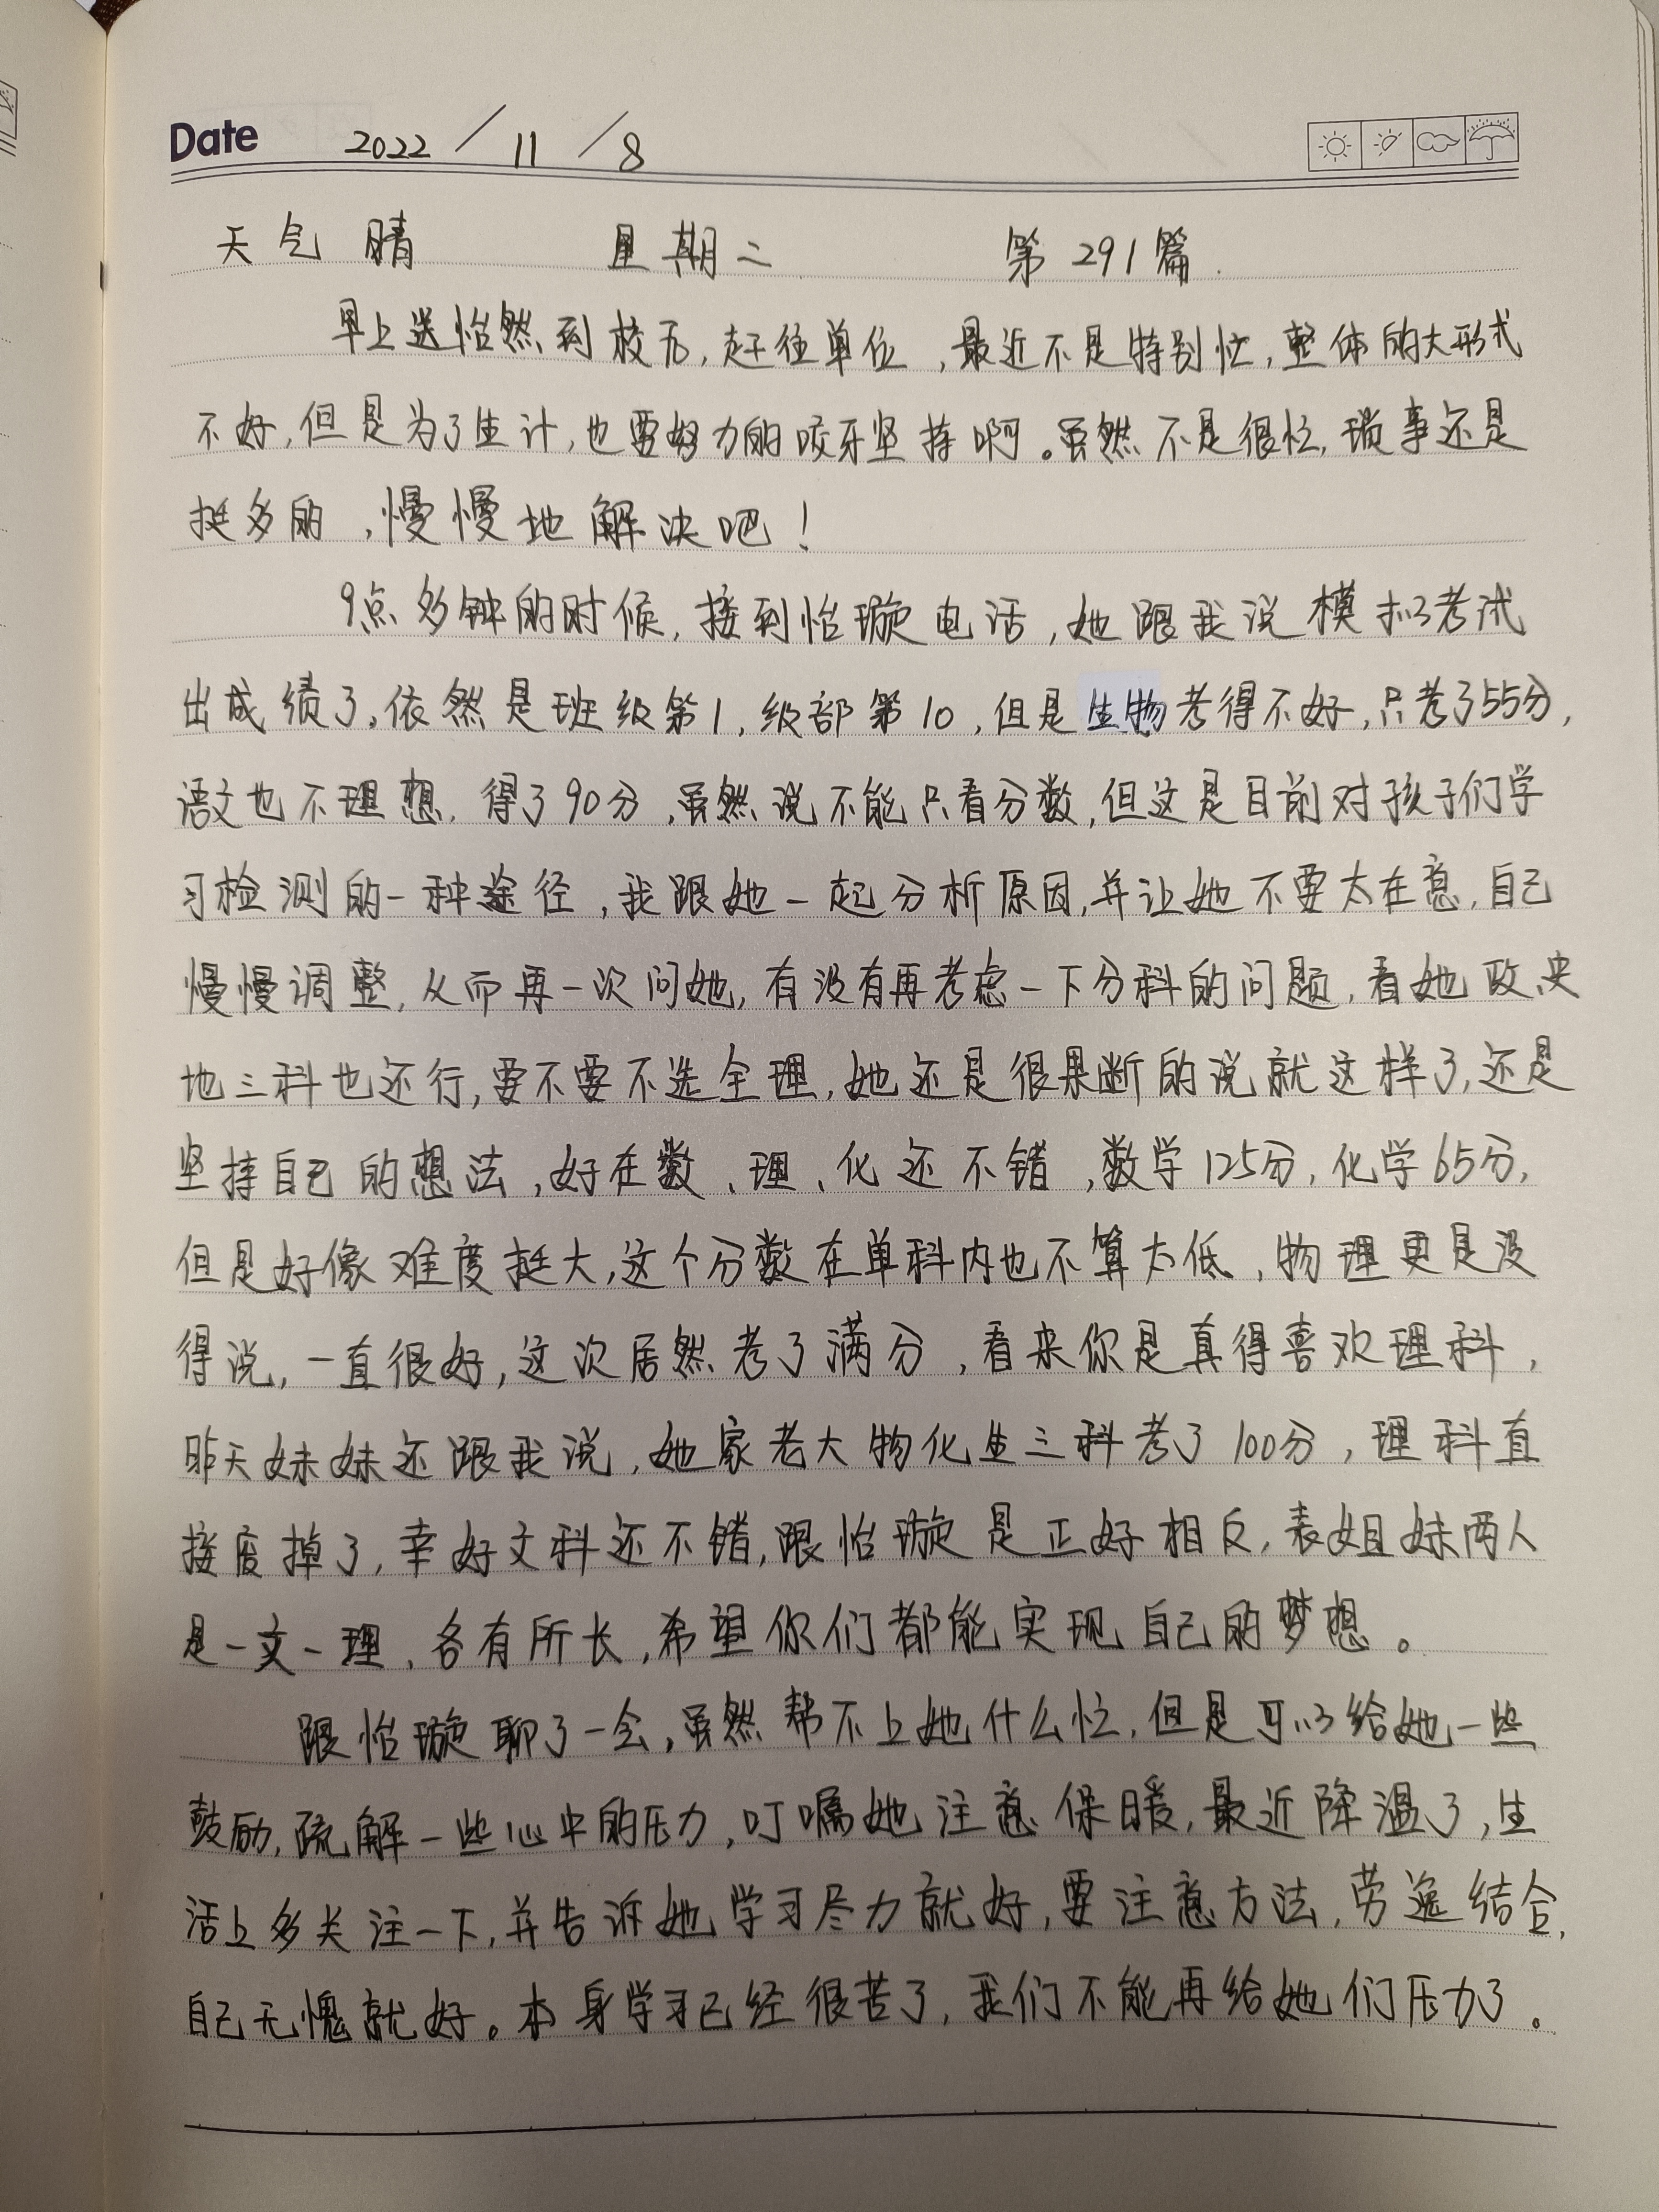 Date 2022 / 11 / 8
天气 晴 星期二 第291篇.
早上送怡然到校后,赶往单位,最近不是特别忙,整体的大形式
不好,但是为了生计,也要努力的咬牙坚持啊。虽然不是很忙,琐事还是
挺多的,慢慢地解决吧!
9点多钟的时候,接到怡璇电话,她跟我说模拟考试
出成绩了,依然是班级第1,级部第10,但是生物考得不好,只考了55分,
语文也不理想,得了90分,虽然说不能只看分数,但这是目前对孩子们学
习检测的一种途径,我跟她一起分析原因,并让她不要太在意,自己
慢慢调整,从而再一次问她,有没有再考虑一下分科的问题,看她政史
地三科也还行,要不要不选全理,她还是很果断的说就这样了,还是
坚持自己的想法,好在数、理、化还不错,数学125分,化学65分,
但是好像难度挺大,这个分数在单科内也不算太低,物理更是没
得说,一直很好,这次居然考了满分,看来你是真得喜欢理科,
昨天妹妹还跟我说,她家老大物化生三科考了100分,理科直
接废掉了,幸好文科还不错,跟怡璇是正好相反,表姐妹两人
是一文一理,各有所长,希望你们都能实现自己的梦想。
跟怡璇聊了一会,虽然帮不上她什么忙,但是可以给她一些
鼓励,疏解一些心中的压力,叮嘱她注意保暖,最近降温了,生
活上多关注一下,并告诉她学习尽力就好,要注意方法,劳逸结合,
自己无愧就好。本身学习已经很苦了,我们不能再给她们压力了。